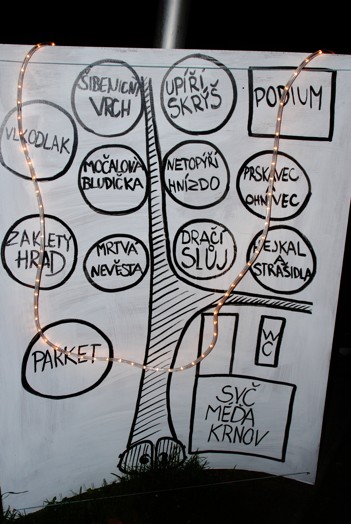 ŠIBENIČNÍ
VRCH
UPÍŘÍ
SKRÝŠ
PODIUM
VLKODLAK
MOČÁLOVÁ
BLUDIČKA
NETOPÝŘÍ
HNÍZDO
PRSKAVEC
A
OHNIVEC
ZAKLETÝ
HRAD
MRTVÁ
NEVĚSTA
DRAČÍ
SLŮJ
HEJKAL
A
STRAŠIDLA
PARKET
WC
SVČ
MÉĎA
KRNOV